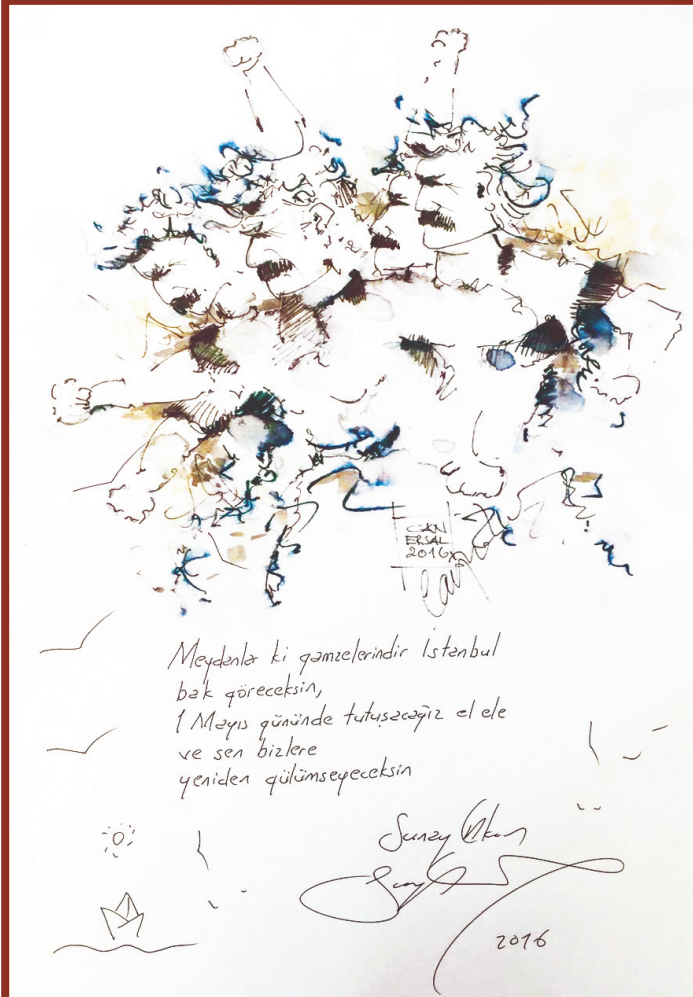 CAN
ERSAL
2016
Meydanlar ki gamzelerindir İstanbul
bak göreceksin,
1 Mayıs gününde tutuşacağız el ele
ve sen bizlere
yeniden gülümseyeceksin
Sunay Akın
2016